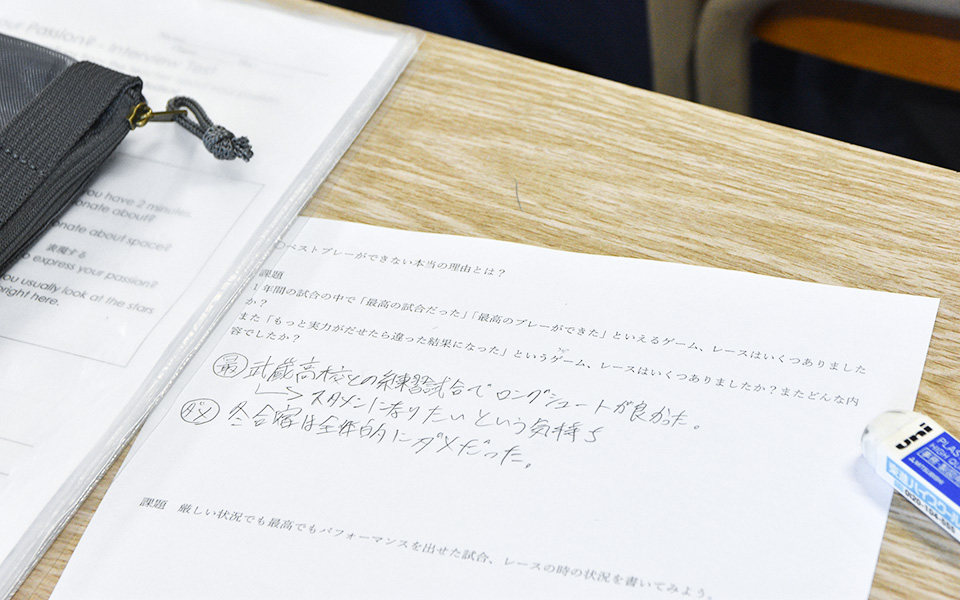 out Passion? - Interview Test
you have 2 minutes.
onate about?
onate about space?
表現する
to express your passion?
you usually look at the stars
bright here.
○ベストプレーができない本当の理由とは？
課題
1年間の試合の中で「最高の試合だった」「最高のプレーができた」といえるゲーム、レースはいくつありました
か？
また「もっと実力がだせたら違った結果になった」というゲーム、レースはいくつありましたか？またどんな内
容でしたか？
最 武蔵高校との練習試合でロングシュートが良かった。
スタメンになりたいという気持ち
ダメ 冬合宿は全体的にダメだった。
課題 厳しい状況でも最高でもパフォーマンスを出せた試合、レースの時の状況を書いてみよう。
uni
PLAS
HIGH